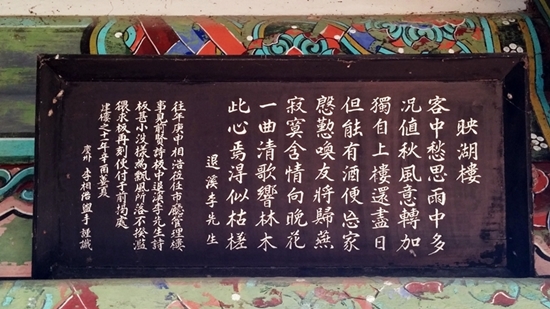 映湖樓
客中愁思雨中多
况值秋風意轉加
獨自上樓還盡日
但能有酒便忘家
慇懃喚友將歸燕
寂寞含情向晚花
一曲清歌響林木
此心焉得似枯槎
退溪李先生
往年庚申相浩莅任市廳管理樓
事見前賢詩板中退溪李先生詩
板甚小 樣為飄風所落不揆濫
猥求板再刻使付于前揭處
建樓之十二年辛酉 夏
廣州 李相浩 盥手謹識